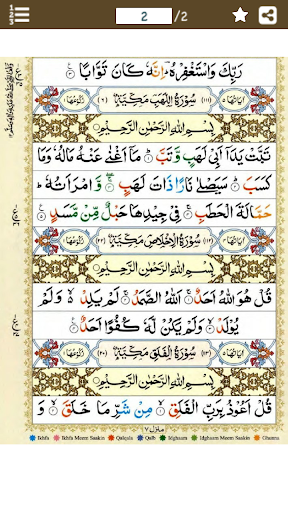 2 /2
رَبِّكَ وَاسْتَغْفِرْهُ ؕ اِنَّهٗ كَانَ تَوَّابًا
اٰيَاتُهَا ٥ (١١١) سُوْرَةُ اللَّهَبِ مَكِّيَّةٌ (٦) رُكُوْعُهَا ١
بِسْمِ اللهِ الرَّحْمٰنِ الرَّحِيْمِ
تَبَّتْ يَدَاۤ اَبِيْ لَهَبٍ وَّتَبَّ ؕ مَاۤ اَغْنٰى عَنْهُ مَالُهٗ وَمَا
كَسَبَ ؕ سَيَصْلٰى نَارًا ذَاتَ لَهَبٍ ۚ وَّامْرَاَتُهٗ ؕ
حَمَّالَةَ الْحَطَبِ ۚ فِيْ جِيْدِهَا حَبْلٌ مِّنْ مَّسَدٍ
اٰيَاتُهَا ٤ (١١٢) سُوْرَةُ الْاِخْلَاصِ مَكِّيَّةٌ (٢٢) رُكُوْعُهَا ١
بِسْمِ اللهِ الرَّحْمٰنِ الرَّحِيْمِ
قُلْ هُوَ اللهُ اَحَدٌ ۚ اَللهُ الصَّمَدُ ۚ لَمْ يَلِدْ ۙ وَلَمْ
يُوْلَدْ ۙ وَلَمْ يَكُنْ لَّهٗ كُفُوًا اَحَدٌ
اٰيَاتُهَا ٥ (١١٣) سُوْرَةُ الْفَلَقِ مَكِّيَّةٌ (٢٠) رُكُوْعُهَا ١
بِسْمِ اللهِ الرَّحْمٰنِ الرَّحِيْمِ
قُلْ اَعُوْذُ بِرَبِّ الْفَلَقِ ۙ مِنْ شَرِّ مَا خَلَقَ ۙ وَ
منزل ٧
Ikhfa Ikhfa Meem Saakin Qalqala Qalb Idghaam Idghaam Meem Saakin Ghunna